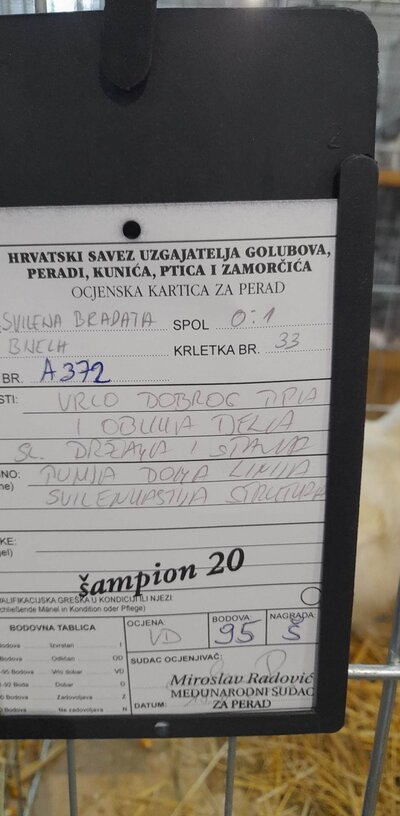 HRVATSKI SAVEZ UZGAJATELJA GOLUBOVA,
PERADI, KUNIĆA, PTICA I ZAMORČIĆA
OCJENSKA KARTICA ZA PERAD
SVILENA BRADATA SPOL 0:1
BIJELA KRLETKA BR. 33
BR. A372
STI: VRLO DOBROG TIPA
I OBLIKA TIJELA
SL. DRŽANJA I STAVA
NO: PUNIJA DONJA LINIJA
ne) SVILENKASTIJA STRUKTURA
KE:
gel)
šampion 20
ALIFIKACIJSKA GREŠKA U KONDICIJI ILI NJEZI
schließende Mänel in Kondition oder Pflege)
BODOVNA TABLICA OCJENA VD BODOVA 95 NAGRADA Š
Bodova Izvrstan I
Bodova Odličan OD
-95 Bodova Vrlo dobar VD
-92 Boda Dobar D
0 Bodova Zadovoljava Z
0 Bodova Ne zadovoljava N
SUDAC OCJENJIVAČ:
Miroslav Radović
MEĐUNARODNI SUDAC
DATUM: ZA PERAD